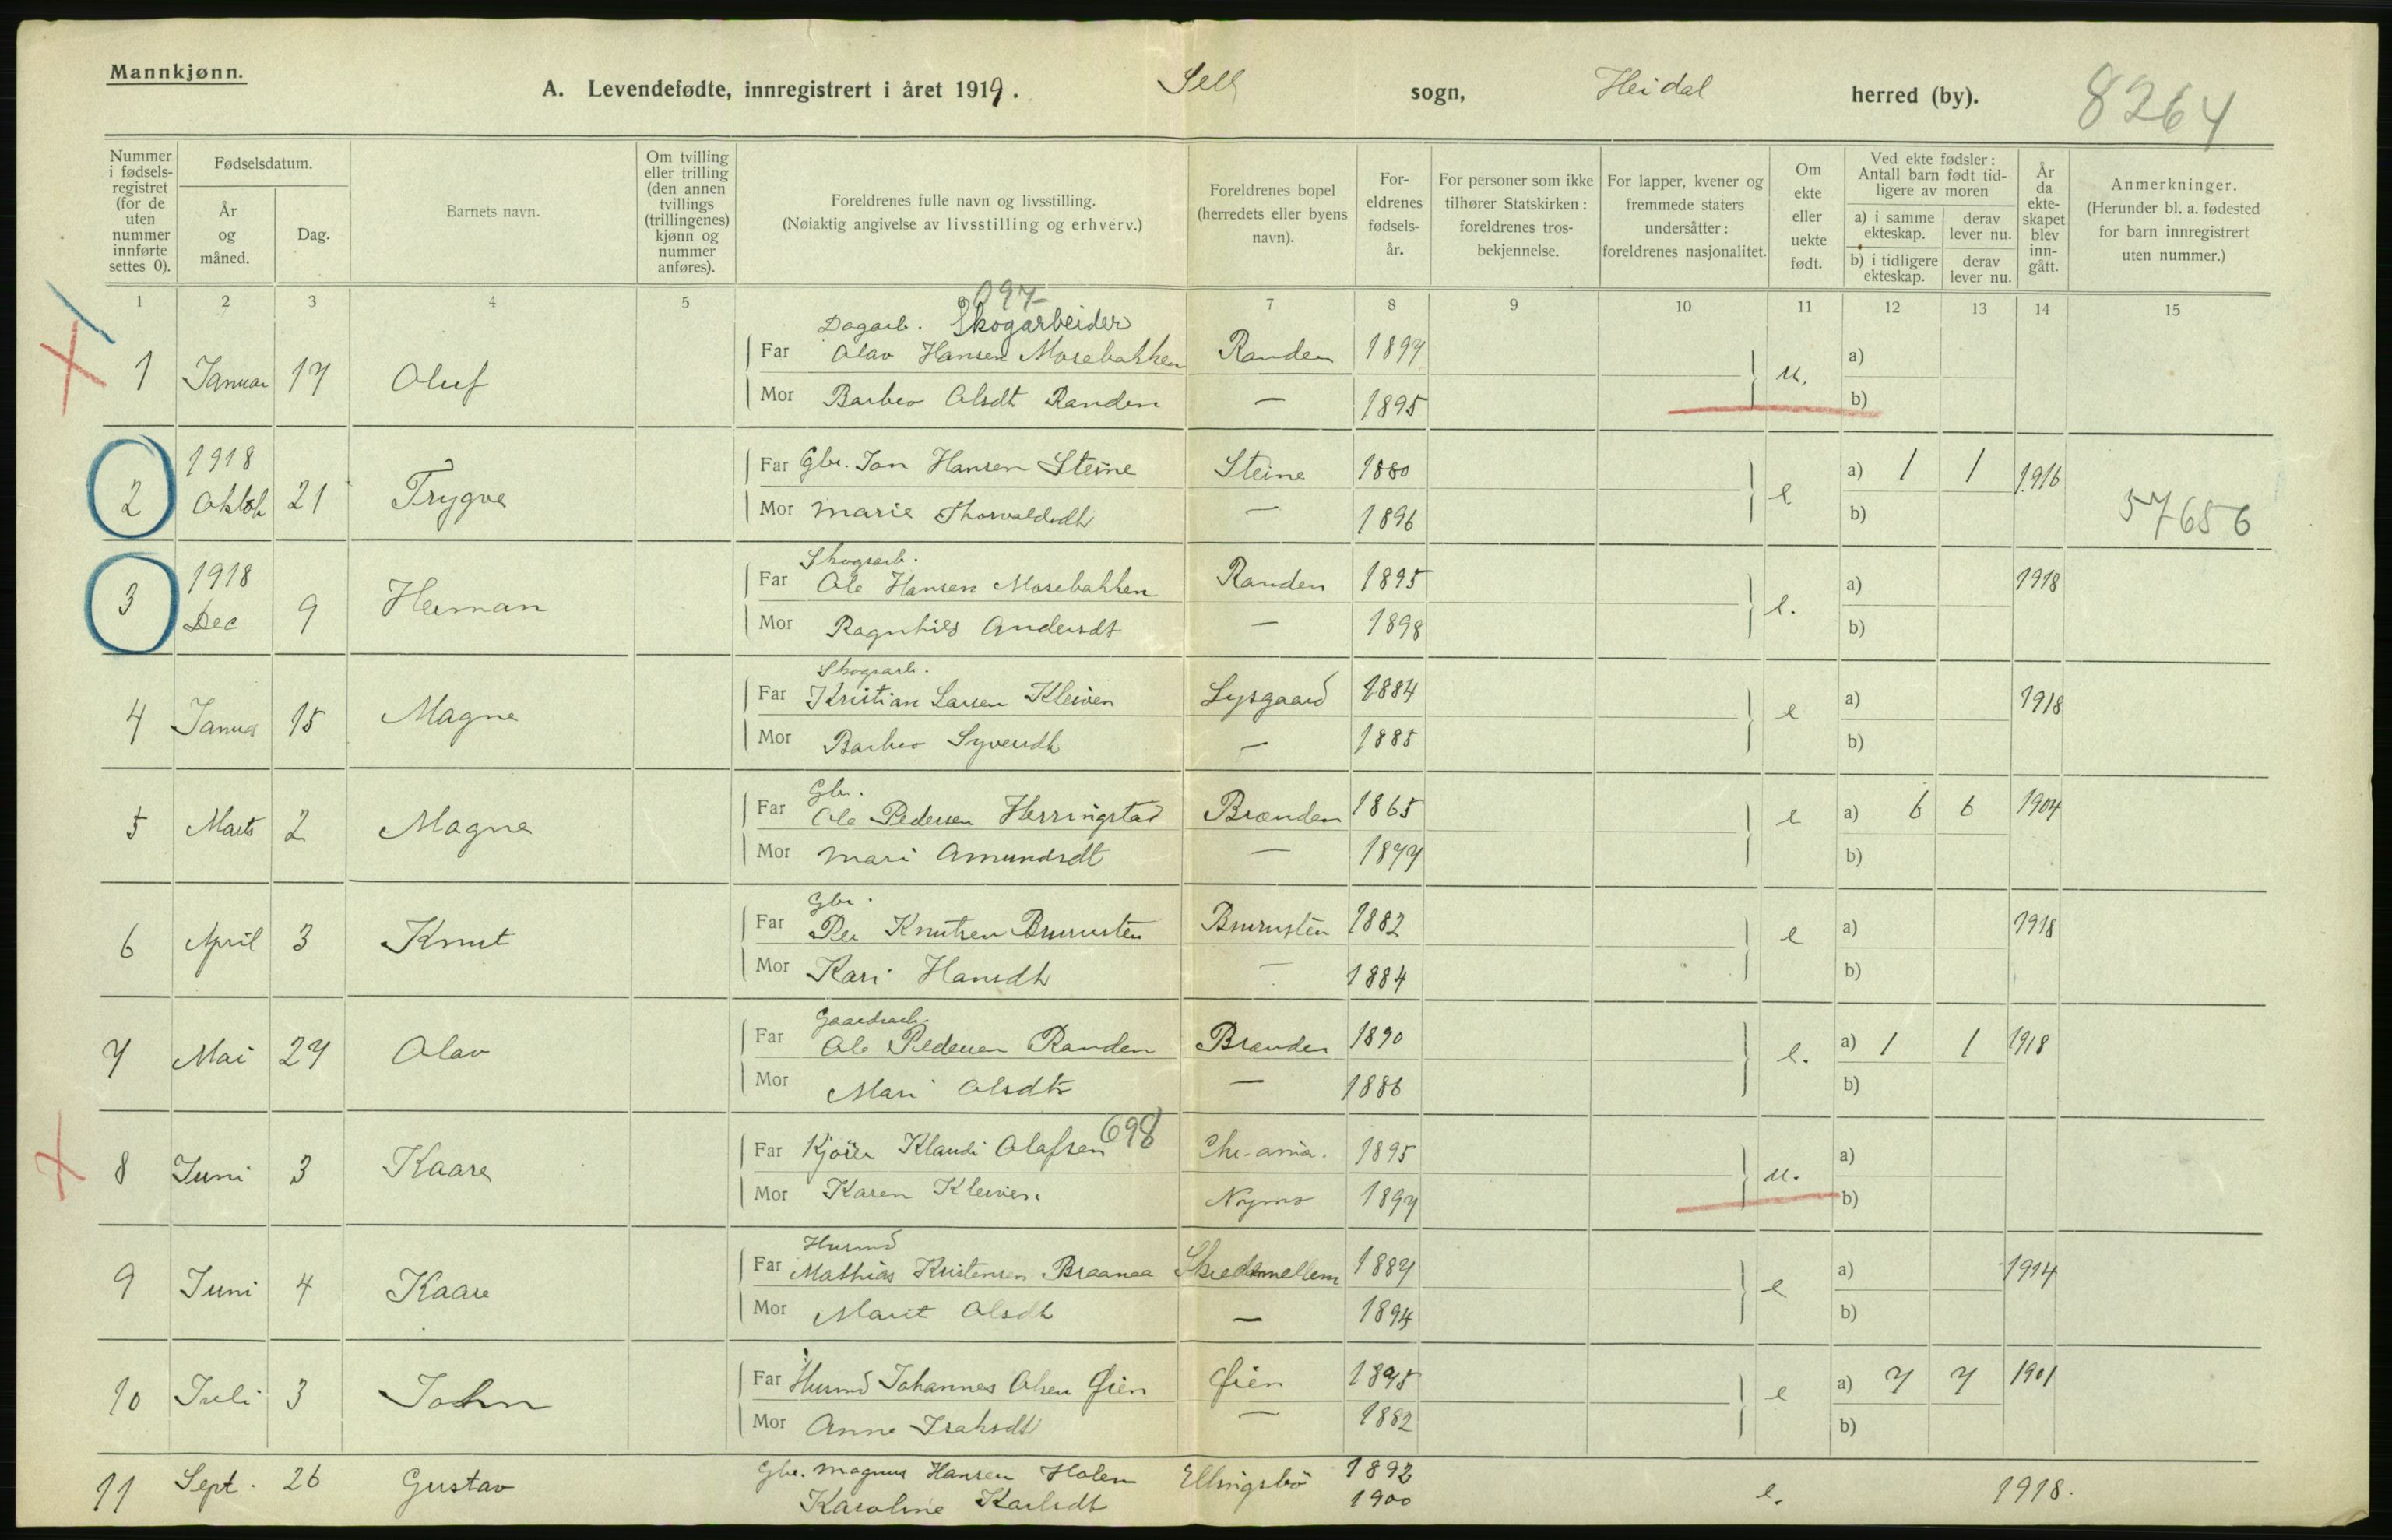 Mannkjønn.
A. Levendefødte, innregistrert i året 1919. Sell sogn, Heidal herred (by). 8264
Nummer i fødselsregistret (for de uten nummer innførte settes 0).
Fødselsdatum.
År og måned.
Dag.
Barnets navn.
Om tvilling eller trilling (den annen tvillings (trillingenes) kjønn og nummer anføres).
Foreldrenes fulle navn og livsstilling.
(Nøiaktig angivelse av livsstilling og erhverv.)
Foreldrenes bopel (herredets eller byens navn).
Foreldrenes fødselsår.
For personer som ikke tilhører Statskirken: foreldrenes trosbekjennelse.
For lapper, kvener og fremmede staters undersåtter: foreldrenes nasjonalitet.
Om ekte eller uekte født.
Ved ekte fødsler: Antall barn født tidligere av moren
a) i samme ekteskap. derav lever nu.
b) i tidligere ekteskap. derav lever nu.
År da ekteskapet blev inngått.
Anmerkninger.
(Herunder bl. a. fødested for barn innregistrert uten nummer.)
1 2 3 4 5 7 8 9 10 11 12 13 14 15
097
Dagarb. Skogarbeider
1 Januar 17 Oluf Far Olav Hansen Morebakken Randen 1897 u. a)
Mor Barbro Olsdt Randen — 1895 b)
2 1918 Oktob 21 Trygve Far Gbr. Jon Hansen Steine Steine 1880 e a) 1 1 1916 57656
Mor Marie Thorvaldsdt — 1896 b)
Skogsarb.
3 1918 Dec 9 Herman Far Ole Hansen Morebakken Randen 1895 e. a) 1918
Mor Ragnhild Andersdt — 1898 b)
Skogsarb.
4 Januar 15 Magne Far Kristian Larsen Kleiven Lysgaard 1884 e a) 1918
Mor Barbro Syverdt — 1885 b)
Gbr.
5 Marts 2 Magne Far Ole Pedersen Herringstad Brænden 1865 e a) 6 6 1904
Mor Mari Amundsdt — 1877 b)
Gbr.
6 April 3 Knut Far Per Knutsen Bururusten Bururusten 1882 e a) 1918
Mor Kari Hansdt — 1884 b)
Gaardsarb.
7 Mai 27 Olav Far Ole Pedersen Randen Brænden 1890 e. a) 1 1 1918
Mor Mari Olsdt — 1886 b)
698
8 Juni 3 Kaare Far Kjører Klaudi Olafsen Chr.ania. 1895 u. a)
Mor Karen Kleiven. 1897 b)
Husmd
9 Juni 4 Kaare Far Mathias Kristensen Braanaa Skredmellem 1887 e a) 1914
Mor Marit Olsdt — 1894 b)
10 Juli 3 John Far Husmd Johannes Olsen Øien Øien 1875 e a) 7 7 1901
Mor Anne Isaksdt — 1882 b)
11 Sept. 26 Gustav Gbr. Magnus Hansen Holen Ellingsbø 1892 e. 1918.
Karoline Karlsdt 1900